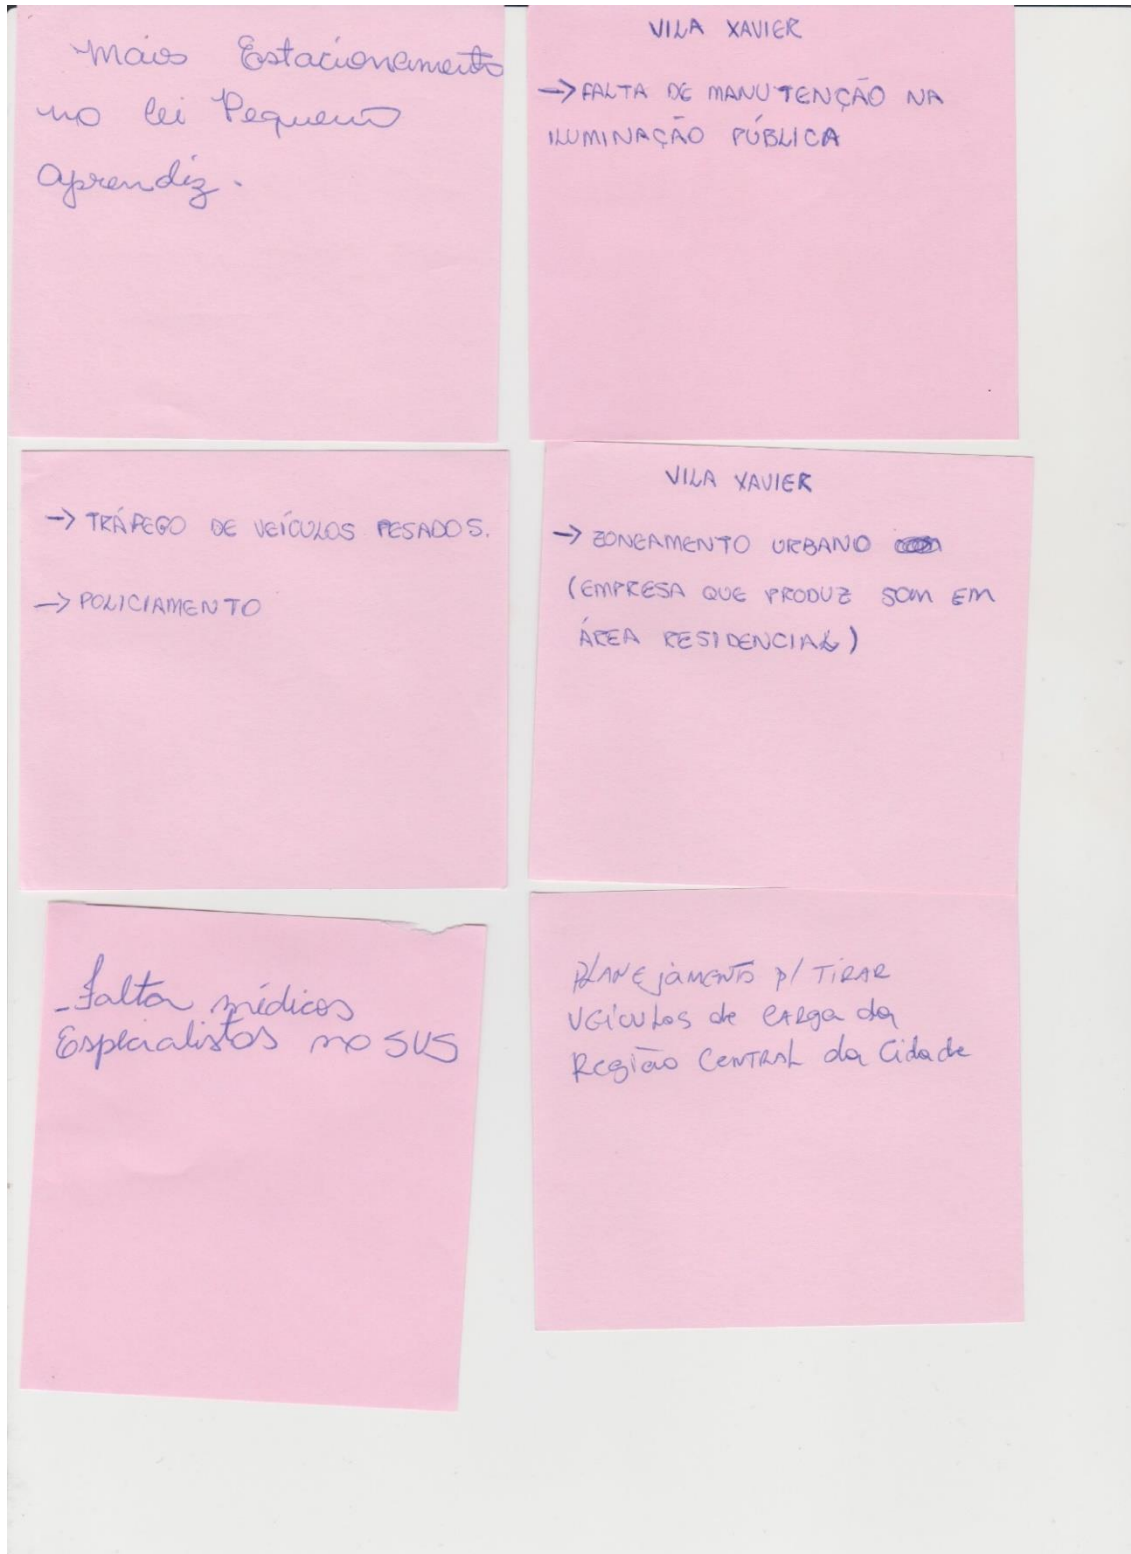 Mais Estacionamento
no Cei Pequeno
Aprendiz.
VILA XAVIER
→ FALTA DE MANUTENÇÃO NA
ILUMINAÇÃO PÚBLICA
→ TRÁFEGO DE VEÍCULOS PESADOS.
→ POLICIAMENTO
VILA XAVIER
→ ZONEAMENTO URBANO
(EMPRESA QUE PRODUZ SOM EM
ÁREA RESIDENCIAL)
- Falta médicos
Especialistas no SUS
PLANEjAMENTO p/ TIRAR
VEÍCULOS de CARga da
REgIÃO CENTRAL da Cidade